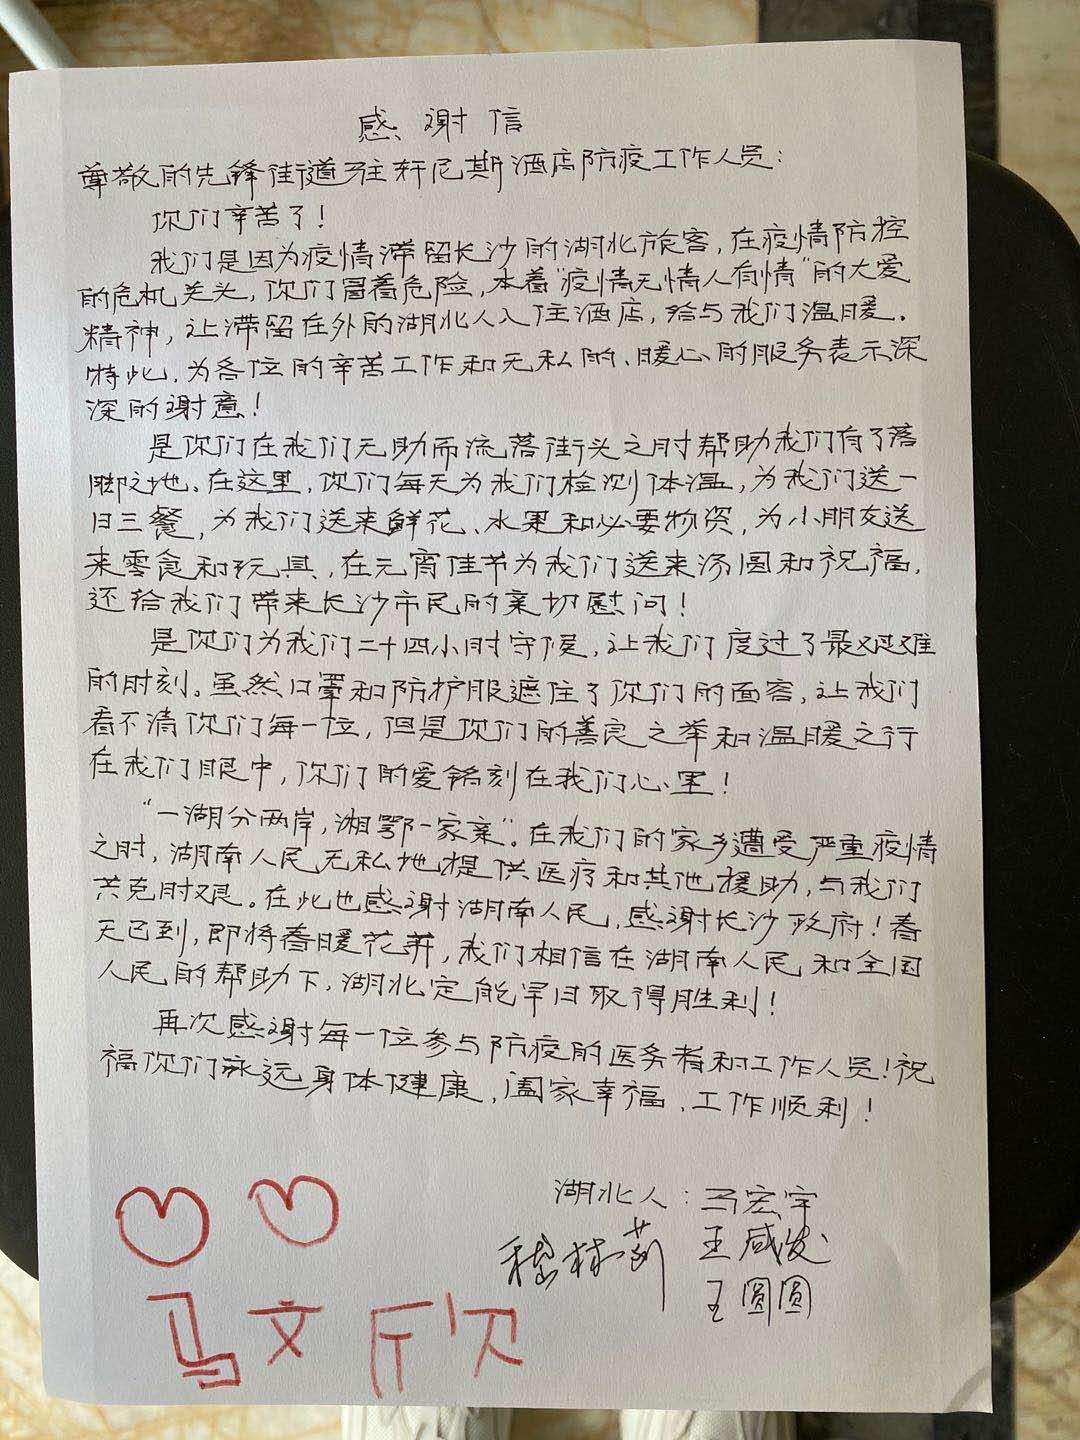 感谢信
尊敬的先锋街道驻轩尼斯酒店防疫工作人员：
你们辛苦了！
我们是因为疫情滞留长沙的湖北旅客，在疫情防控
的危机关头，你们冒着危险，本着“疫情无情人有情”的大爱
精神，让滞留在外的湖北人入住酒店，给与我们温暖。
特此，为各位的辛苦工作和无私的、暖心的服务表示深
深的谢意！
是你们在我们无助而流落街头之时帮助我们有了落
脚之地。在这里，你们每天为我们检测体温，为我们送一
日三餐，为我们送来鲜花、水果和必要物资，为小朋友送
来零食和玩具，在元宵佳节为我们送来汤圆和祝福，
还给我们带来长沙市民的亲切慰问！
是你们为我们二十四小时守候，让我们度过了最艰难
的时刻。虽然口罩和防护服遮住了你们的面容，让我们
看不清你们每一位，但是你们的善良之举和温暖之行
在我们眼中，你们的爱铭刻在我们心里！
“一湖分两岸，湘鄂一家亲”。在我们的家乡遭受严重疫情
之时，湖南人民无私地提供医疗和其他援助，与我们
共克时艰。在此也感谢湖南人民，感谢长沙政府！春
天已到，即将春暖花开，我们相信在湖南人民和全国
人民的帮助下，湖北定能早日取得胜利！
再次感谢每一位参与防疫的医务者和工作人员！祝
福你们永远身体健康，阖家幸福，工作顺利！
湖北人：马宏宇
嵇林莉 王咸发
王圆圆
马文欣